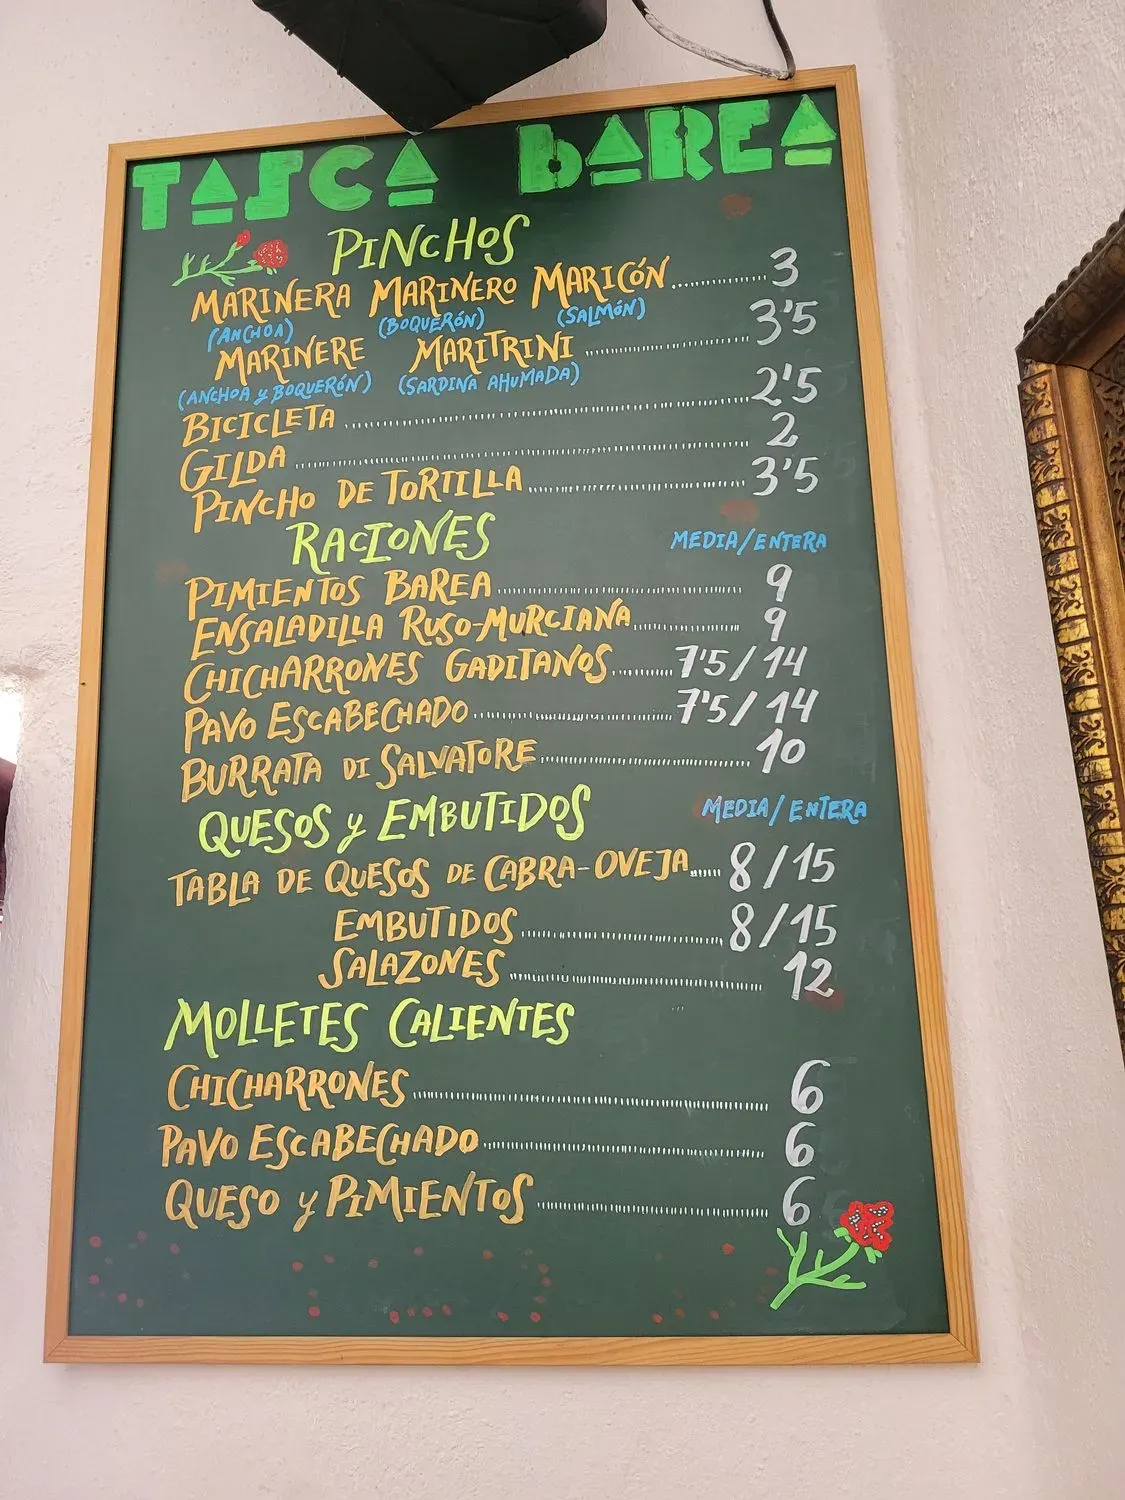 TASCA BAREA
PINCHOS
MARINERA MARINERO MARICÓN 3
(ANCHOA) (BOQUERÓN) (SALMÓN)
MARINERE MARITRINI 3'5
(ANCHOA y BOQUERÓN) (SARDINA AHUMADA)
BICICLETA 2'5
GILDA 2
PINCHO DE TORTILLA 3'5
RACIONES MEDIA/ENTERA
PIMIENTOS BAREA 9
ENSALADILLA RUSO-MURCIANA 9
CHICHARRONES GADITANOS 7'5/14
PAVO ESCABECHADO 7'5/14
BURRATA DI SALVATORE 10
QUESOS y EMBUTIDOS MEDIA/ENTERA
TABLA DE QUESOS DE CABRA-OVEJA 8/15
EMBUTIDOS 8/15
SALAZONES 12
MOLLETES CALIENTES
CHICHARRONES 6
PAVO ESCABECHADO 6
QUESO y PIMIENTOS 6